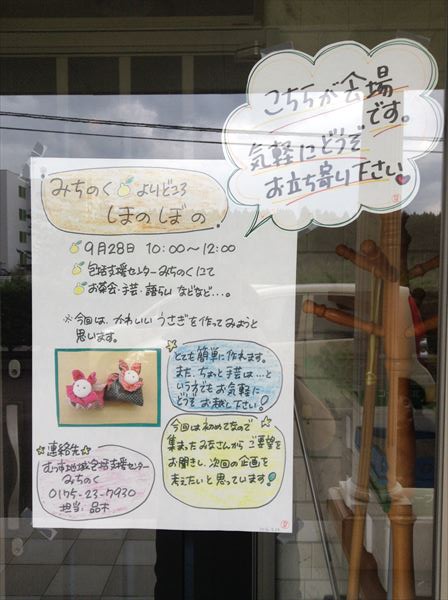 こちらが会場
です。
気軽にどうぞ
お立ち寄り下さい
みちのく よりどころ
ほのぼの
9月28日 10:00〜12:00
包括支援センターみちのくにて
お茶会・手芸・語らい などなど…。
※今回は、かわいい うさぎ を作ってみようと
思います。
とても簡単に作れます。
また、ちょっと手芸は…と
いう方でもお気軽に
どうぞ お越し下さい!
今回は初めてなので
集まったみなさんから ご要望を
お聞きし、次回の企画を
考えたいと思っています!
連絡先
むつ市地域包括支援センター
みちのく
0175-23-7930
担当 品木